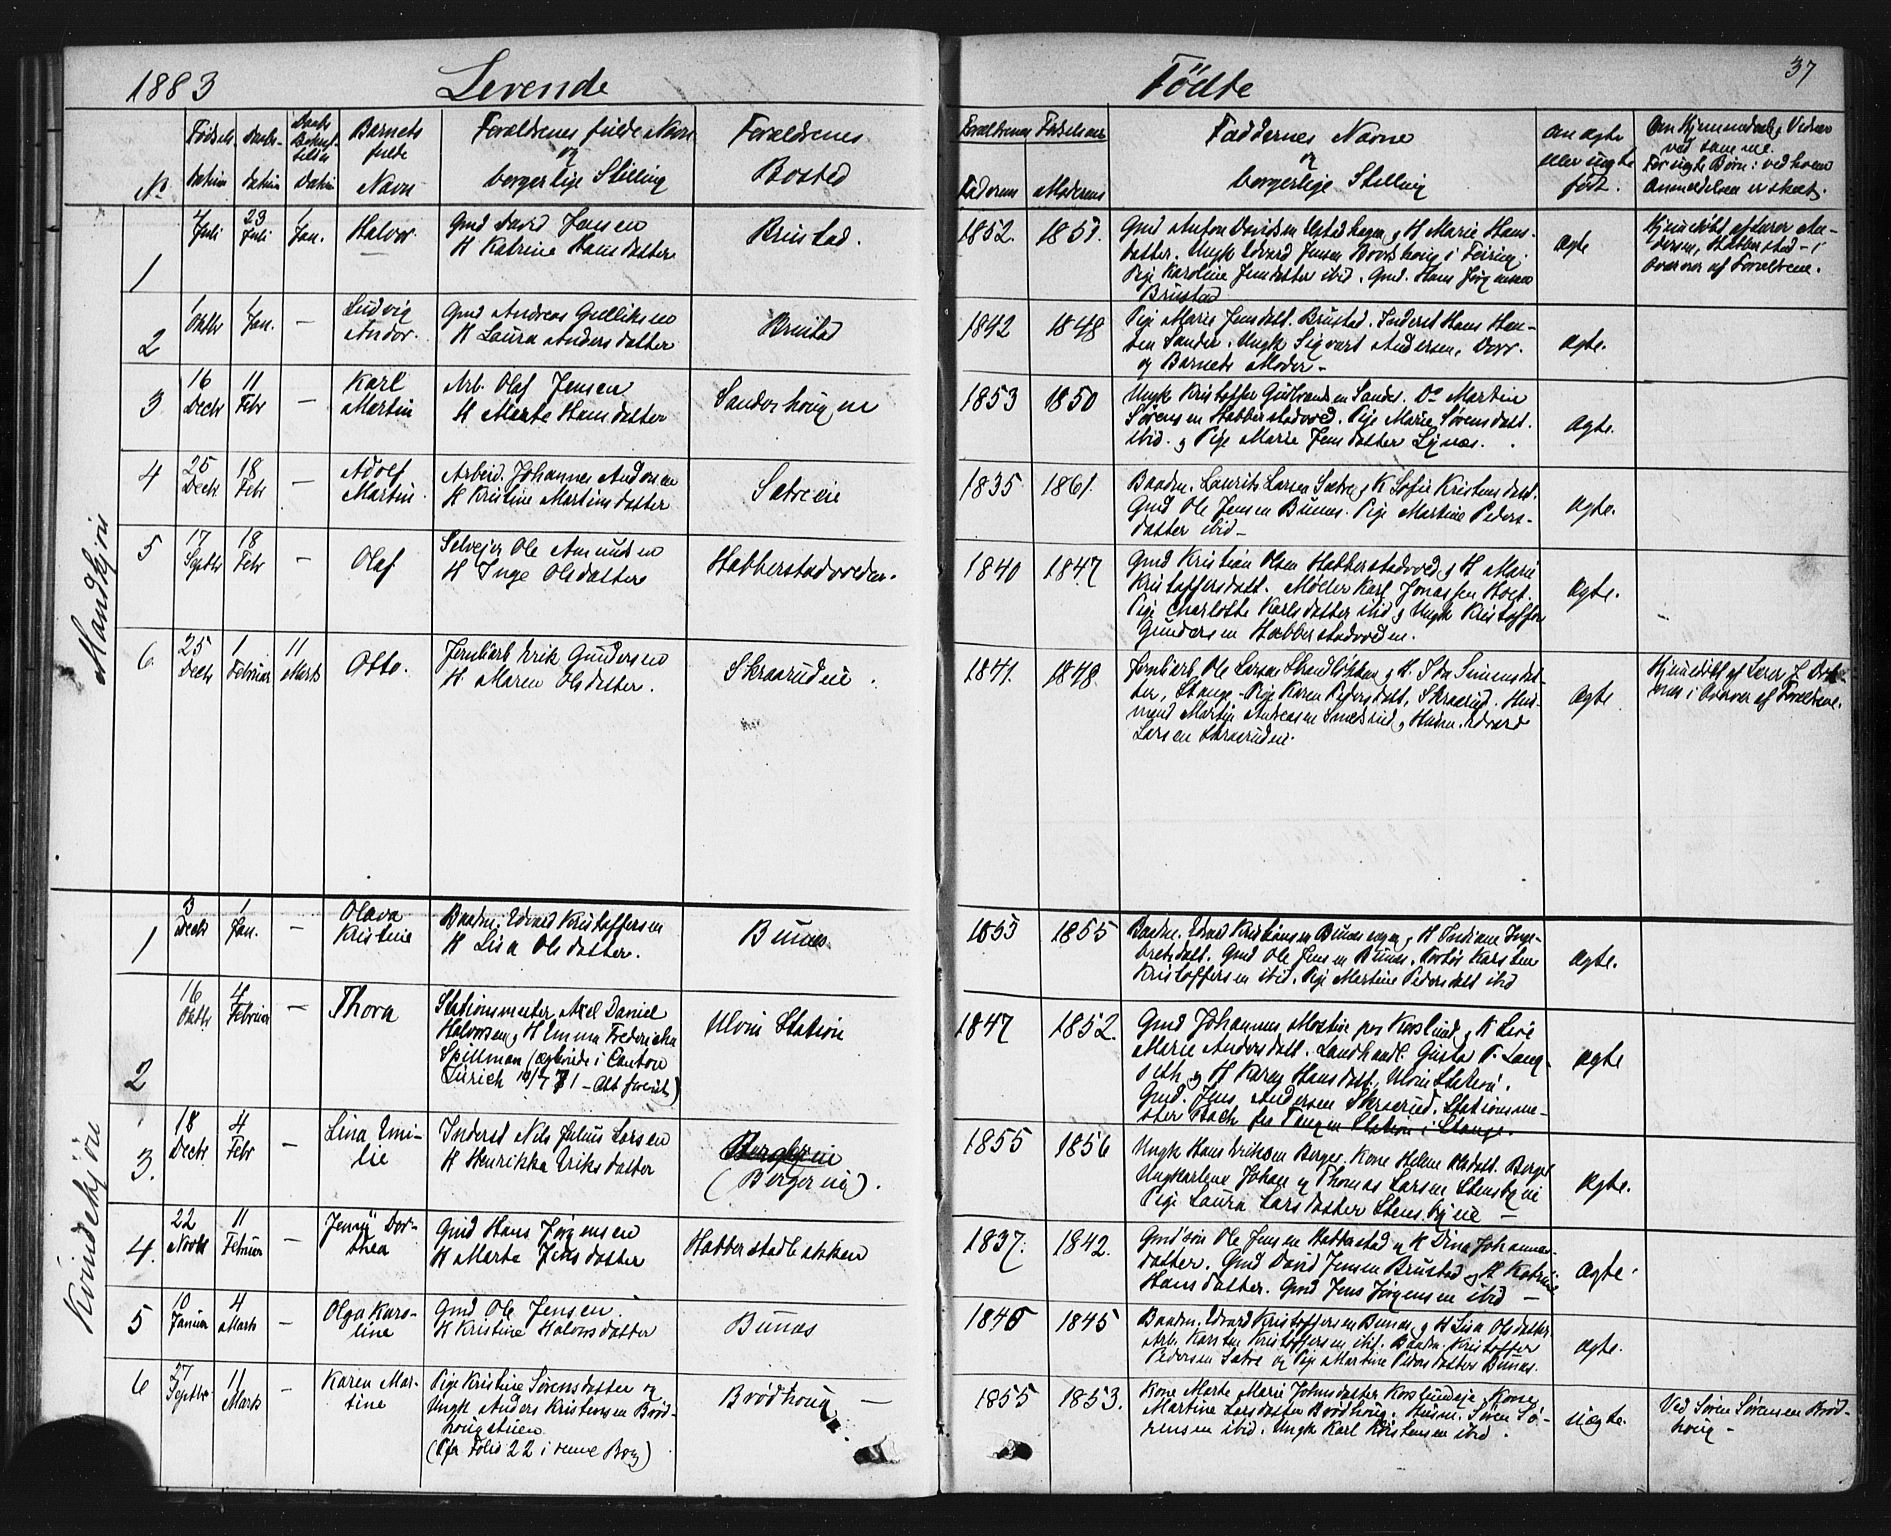 1883 Levende
Födte 37
No
Födsels datum
Daabs datum
Daabs Bekræftelses Datum
Barnets fulde Navn
Forældrenes fulde Navn og borgerlige Stilling
Forældrenes Bosted
Forældrenes Fødselsaar
Faderens Moderens
Faddernes Navne og borgerlige Stilling
Om ægte eller uægte født.
Om Hjemmedaab, Vidner ved samme.
For uægte Børn: ved hvem Anmeldelsen er skeet.
Mandkjön
1
4 Juli
23 Juli
1 Jan.
Halvor
Gmd David Jensen
H Katrine Hansdatter
Brustad.
1852. 1851.
Gmd Anton Davidsen Ulstadhagen, H Marie Hans-
datter. Ungk Edvard Jensen
i Feiring.
Pige Karoline Jensdatter ibid. Gmd. Hans Jörgensen
Brustad
ægte
Hjemmedöbt af Lærer An-
dersen, Habberstad i
Overvær af Forældrene.
2
1 Oktbr
1 Jan.
—
Ludvig
Andor.
Gmd Andreas Gulliksen
H Laura Andersdatter
Brustad
1842 1848
Pige Marie Jensdatt. Brustad. Inderst Hans Han-
sen Sander. Ungk Sigvart Andersen, Dorr.
og Barnets Moder –
ægte.
3
16 Decbr
11 Febr
—
Karl
Martin
Arb. Olaf Jensen
H Marte Hansdatter
Sanderhougen
1853 1850
Ungk Kristoffer Gulbrandsen Sander. Do Martin
Sørensen Habberstadved. Pige Marie Sørensdatt.
ibid. og Pige Marie Jensdatter Lynæs.
ægte.
4
25 Decbr
18 Febr
—
Adolf
Martin.
Arbeid. Johannes Andersen
H Kristine Martinsdatter
Sætreeie
1835 1861.
Baadm. Laurits Larsen Sætre, K Sofie Kristensdatt.
Gmd Ole Jensen Bunæs. Pige Martine Peders-
datter ibid –
ægte.
5
17 Septbr
18 Febr
—
Olaf
Selveier Ole Amundsen
H Inge Olsdatter
Habberstadvedur.
1840 1847
Gmd Kristian Olsen Habberstadved, H Marie
Kristoffersdatt. Møller Karl Jonassen Hoel.
Pige Charlotte Karlsdatter ibid, Ungk Kristoffer
Gundersen Habberstadveden.
ægte.
6.
25 Decbr
1 Februar
11 Marts
Otto.
Jernbarb Erik Gundersen
H Maren Olsdatter.
Skraarudeie.
1841. 1848.
Jernbarb Ole Larsen Strandløkken, H. Ida Simensdat-
ter, Stange – Pige Karen Pedersdatt, Skraarud. Hus-
mand Martin Andreasen Smedsrud, Husm. Edvard
Larsen Skraarudeie.
ægte.
Hjemmedöbt af Lærer J.
i Overvær af Forældrene.
Kvindekjön
1
3 Decbr
1 Jan.
—
Olava
Kristine
Baadm. Edvard Kristoffersen
H Lisa Olsdatter.
Bunæs
1853 1855
Baadm. Edvard Kristiansen Bunæsvogn, H Indiane Inge-
bretsdatt. Gmd Ole Jensen Bunæs. Karsten
Kristoffersen ibid. Pige Martine Pedersdatt ibid
ægte.
2
16 Oktbr
4 Februar
—
Thora
Stationsmester Axel Daniel
Halvorsen, H Emma Fredericka
Spillman (ægteviede i Canton
Zürich 10/7 71 – Att forevist)
Ulvin Station
1847 1852.
Gmd Johannes Mostue paa Korslund, K Lise
Marie Andersdatt. Landhandl. Gustav P. Lang-
seth, H Karen Hansdatt. Ulvin Station.
Gmd. Jens Andersen Skraarud. Stationsme-
ster Bach paa Tangen Station i Stange.
ægte
3.
18 Decbr.
4 Febr
—
Lina Emi-
lie
Inderst Nils Julius Larsen
H Henrikka Eriksdatter
(Bergereie).
1855 1856
Ungk Hans Eriksen Berger. Kone Helene Olsdatt. Berger
Ungkarlene Johan og Thomas Larsen Stensbyeie
Pige Laura Larsdatter Stensbyeie –
ægte.
4.
22 Novbr
11 Februar
Jenny Dor-
thea
Gmd Hans Jørgensen
H Marte Jensdatter
Habberstadbakken
1837. 1842.
Gmdsön Ole Jensen Habberstad, K Dina Johannes-
datter. Gmd David Jensen Brustad, H Katrine
Hansdatter. Gmd Jens Jørgensen ibid –
ægte.
5
10 Januar
4 Marts
—
Olga Karo-
line
Gmd Ole Jensen.
H Kristine Halvorsdatter
Bunæs
1846 1845
Baadm. Edvard Kristoffersen Bunæs, H Lisa Olsdatter
Arb. Karsten Kristoffersen ibid. Baadm. Kristoffer
Pedersen Sætre og Pige Martine Pedersdatter Bunæs.
ægte.
6
27 Septbr.
11 Marts
—
Karen Mar-
tine
Pige Kristine Sørensdatter og
Ungk Anders Kristensen Bröd-
hougstuen
(Cfr Folio 22 i denne Bog)
Brödhoug –
1855 1853.
Kone Marte Marie Johnsdatter Korslundeie, Kone
Martine Larsdatter Brödhoug, Husm. Sören Sö-
rensen ibid. Ungk Karl Kristensen ibid.
uægte.
Ved Søren Sørensen Bröd-
houg –